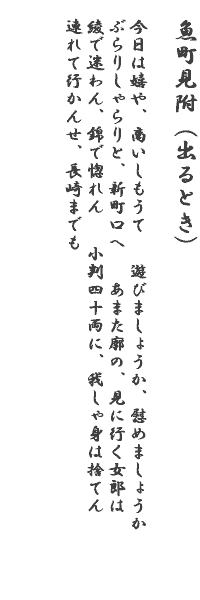 魚町見附(出るとき)
今日は嬉や、商いしもうて　遊びましょうか、慰めましょうか
ぶらりしゃらりと、新町口へ　あまた廓の、見に行く女郎は
綾で迷わん、錦で惚れん　小判四十両に、我しゃ身は捨てん
連れて行かんせ、長崎までも